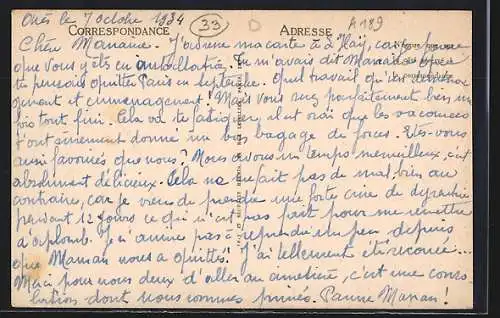 Orés le 7 octobre 1934 33 A189
CORRESPONDANCE ADRESSE
Chère Marianne. J'adresse ma carte à L'Haÿ, car je pense
que vous y êts en installation. Tu m'avais dit Maman que
tu pensais quitter Paris en septembre. Quel travail qu'un
et emménagement! Mais vous serez parfaitement bien une
fois tout fini. Cela va te fatiguer, il est vrai que les vacances
t'ont sûrement donné un bon bagage de forces. Etes-vous
aussi favorisés que nous? Nous avons un temps merveilleux, c'est
absolument délicieux. Cela ne fait pas de mal, bien au
contraire, car je viens de prendre une forte crise de dysenterie
pendant 12 jours ce qui n'est pas fait pour me remettre
d'aplomb. Je n'arrive pas à reprendre un peu depuis
que Maman nous a quittés. J'ai tellement été secouée...
Merci pour nous deux d'aller au cimetière, c'est une conso
lation dont nous sommes privés. Pauvre Maman!